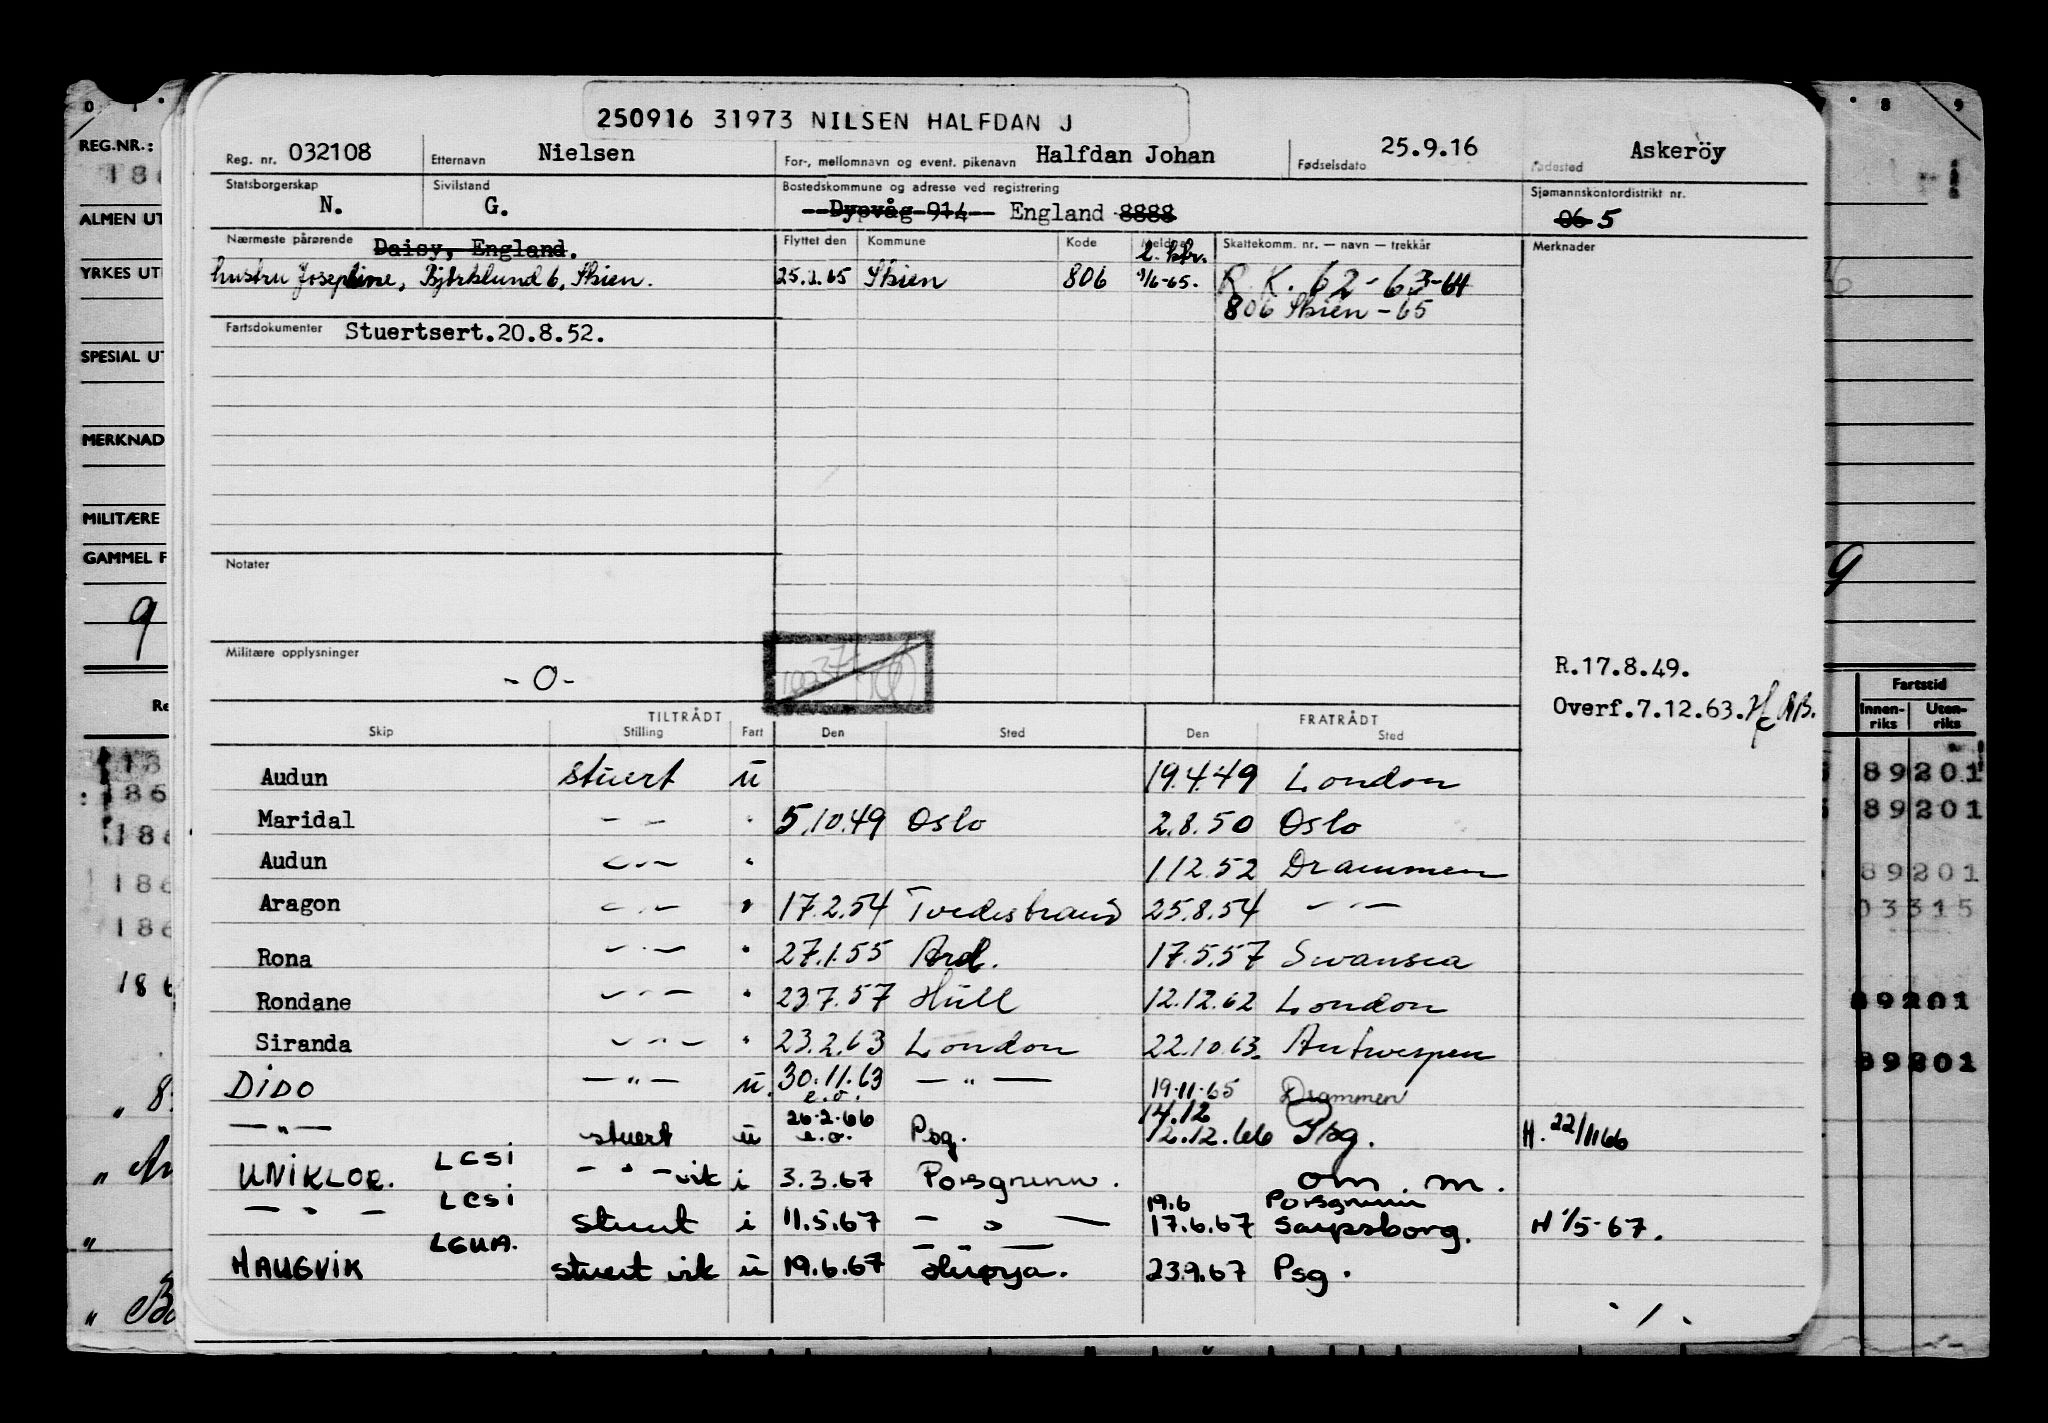 250916 31973 NILSEN HALFDAN J
Reg. nr. 032108 Etternavn Nielsen For-, mellomnavn og event. pikenavn Halfdan Johan Fødselsdato 25.9.16 Fødested Askeröy
Statsborgerskap N. Sivilstand G. Bostedskommune og adresse ved registrering Dypvåg 914 England 8888 Sjømannskontordistrikt nr. 06 5
Nærmeste pårørende Daisy, England. Flyttet den Kommune Kode Meldt Skattekomm. nr. — navn — trekkår Merknader
hustru Josephine, Bjørklund 6, Skien. 25.2.65 Skien 806 1/6-65. R.K. 62-63-64
806 Skien -65
Fartsdokumenter Stuertsert.20.8.52.
Notater
Militære opplysninger -0-
R.17.8.49.
Overf.7.12.63.
TILTRÅDT FRATRÅDT
Skip Stilling Fart Den Sted Den Sted
Audun stuert u 19.4.49 London
Maridal — — " 5.10.49 Oslo 2.8.50 Oslo
Audun — " — " 1 12.52 Drammen
Aragon — " — " 17.2.54 Tvedestrand 25.8.54 — " —
Rona — " — " 27.1.55 Ard. 17.5.57 Swansea
Rondane — " — " 23.7.57 Hull 12.12.62 London
Siranda — " — " 23.2.63 London 22.10.63. Antwerpen
DIDO — " — u. 30.11.63 e.o. — " — 19.11.65 Drammen
— " — stuert u 26.2.66 e.o. Psg. 14.12 12.12.66 Psg. H. 22/11 66
UNIKLOR. LCSI — " — vik i 3.3.67 Porsgrunn. om. m.
— " — LCSI stuert i 11.5.67 — " — 19.6 Porsgrunn 17.6.67 Sarpsborg. H 1/5-67.
HAUGVIK LGUA. stuert vik u 19.6.67 Herøya. 23.9.67 Psg.
REG.NR.:
186
ALMEN UT
YRKES UT
SPESIAL UT
MERKNAD
MILITÆRE
GAMMEL F
9
Fartstid
Innenriks Utenriks
89201
89201
89201
03315
89201
89201